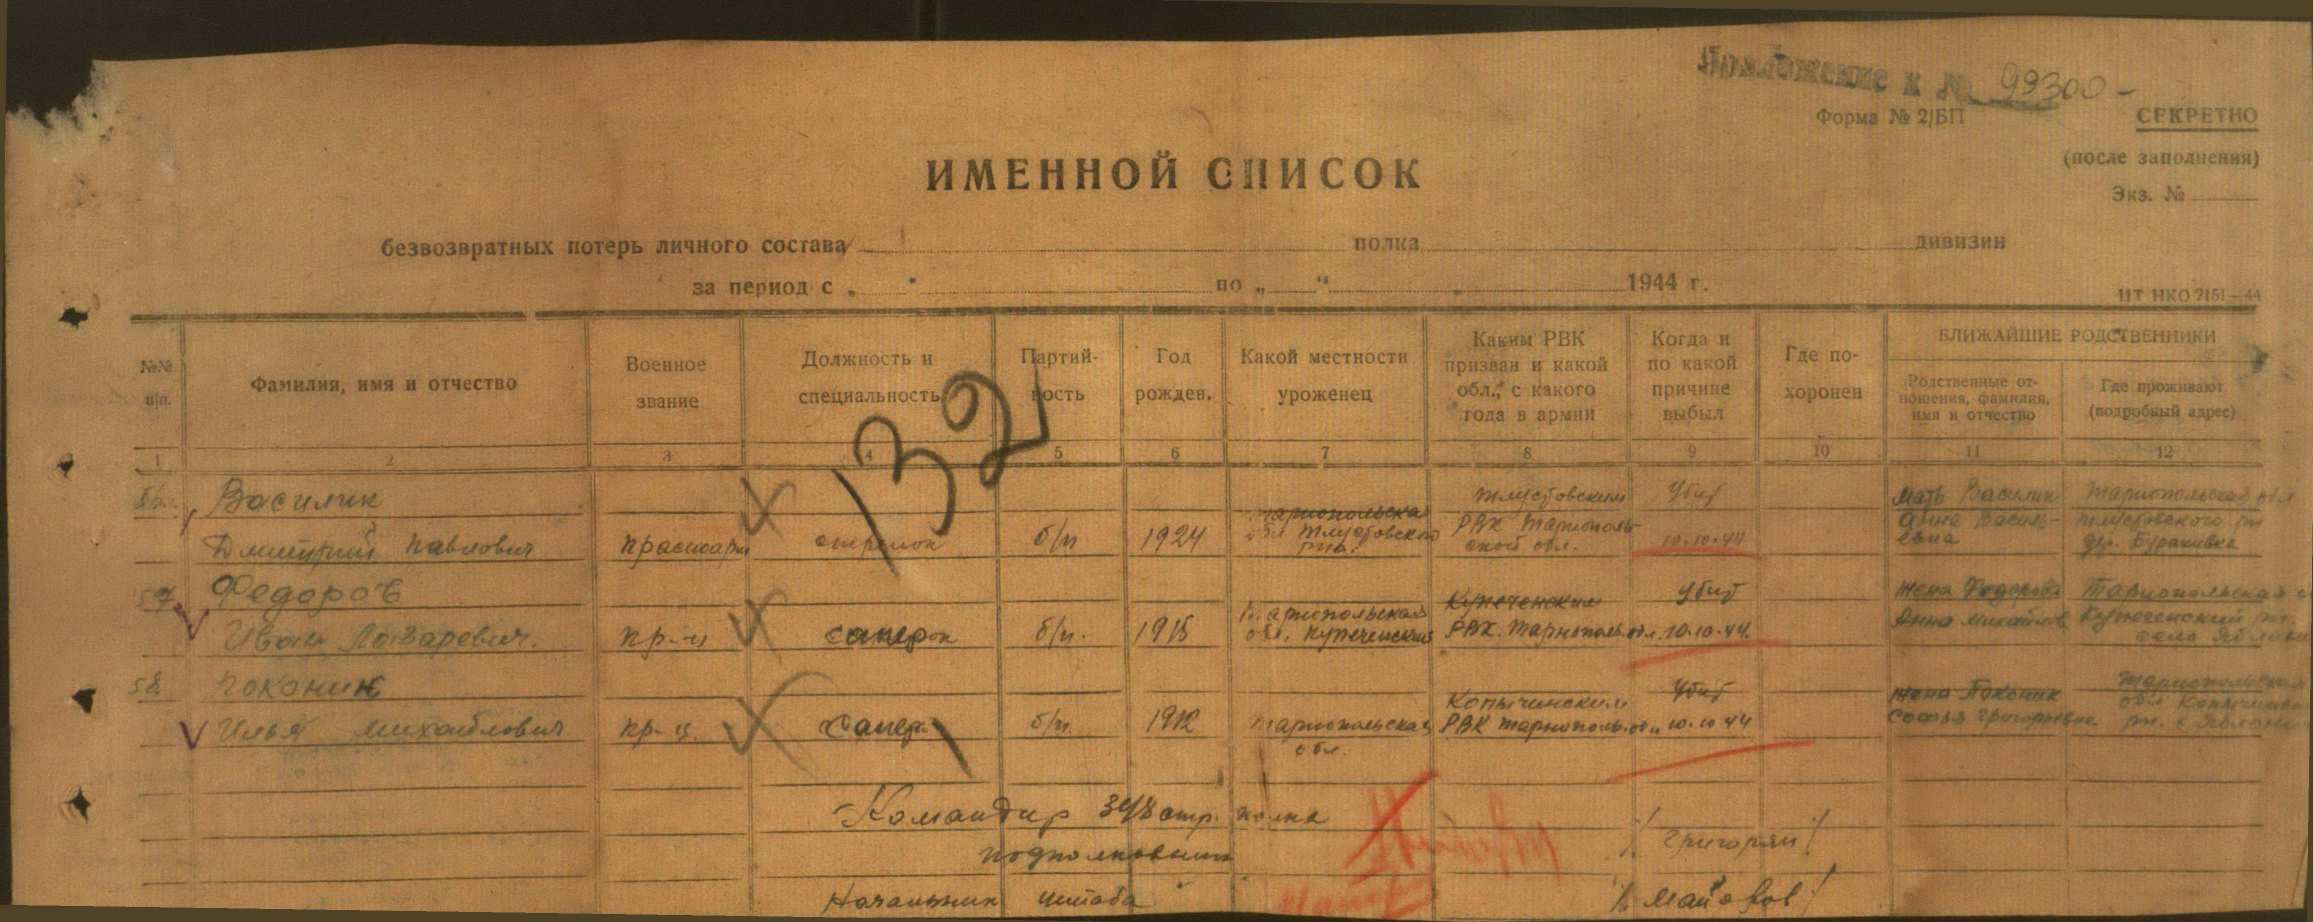 Приложение к № 99300 -
Форма № 2/БП
СЕКРЕТНО
(после заполнения)
Экз. №
ИМЕННОЙ СПИСОК
безвозвратных потерь личного состава полка дивизии
за период с „ " по „ " 1944 г.
ЦТ НКО 2151—44
№№ п/п.
Фамилия, имя и отчество
Военное звание
Должность и специальность
Партийность
Год рожден.
Какой местности уроженец
Каким РВК призван и какой обл., с какого года в армии
Когда и по какой причине выбыл
Где похоронен
БЛИЖАЙШИЕ РОДСТВЕННИКИ
Родственные отношения, фамилия, имя и отчество
Где проживают (подробный адрес)
1 2 3 4 5 6 7 8 9 10 11 12
132
Василик
Дмитрий Павлович
красноарм
стрелок
б/п
1924
Тарнопольская
обл Тлустовского
рна.
Тлустовским
РВК Тарнопольской обл.
Убит
10.10.44
мать Василик
Анна Васильевна
Тарнопольская обл
Тлустовского рн
57.
Федоров
Иван Лазаревич.
кр-ц
б/п.
Тарнопольская
обл. Купеченский
Купеченским
РВК. Тарнополь.обл.
Убит
10.10.44.
жена Федорова
Анна Михайлов
Тарнопольская
Купеченский рн.
58.
Поконик
Илья Михайлович
кр-ц.
сапер
б/п
1912
Тарнопольская
обл.
Копычинским
РВК Тарнополь.об.
Убит
10.10.44
жена Поконик
Софья Григорьевна
Тарнопольская
Командир 348 стр. полка
подполковник
/ Григорян /
Начальник штаба
/ Майоров /